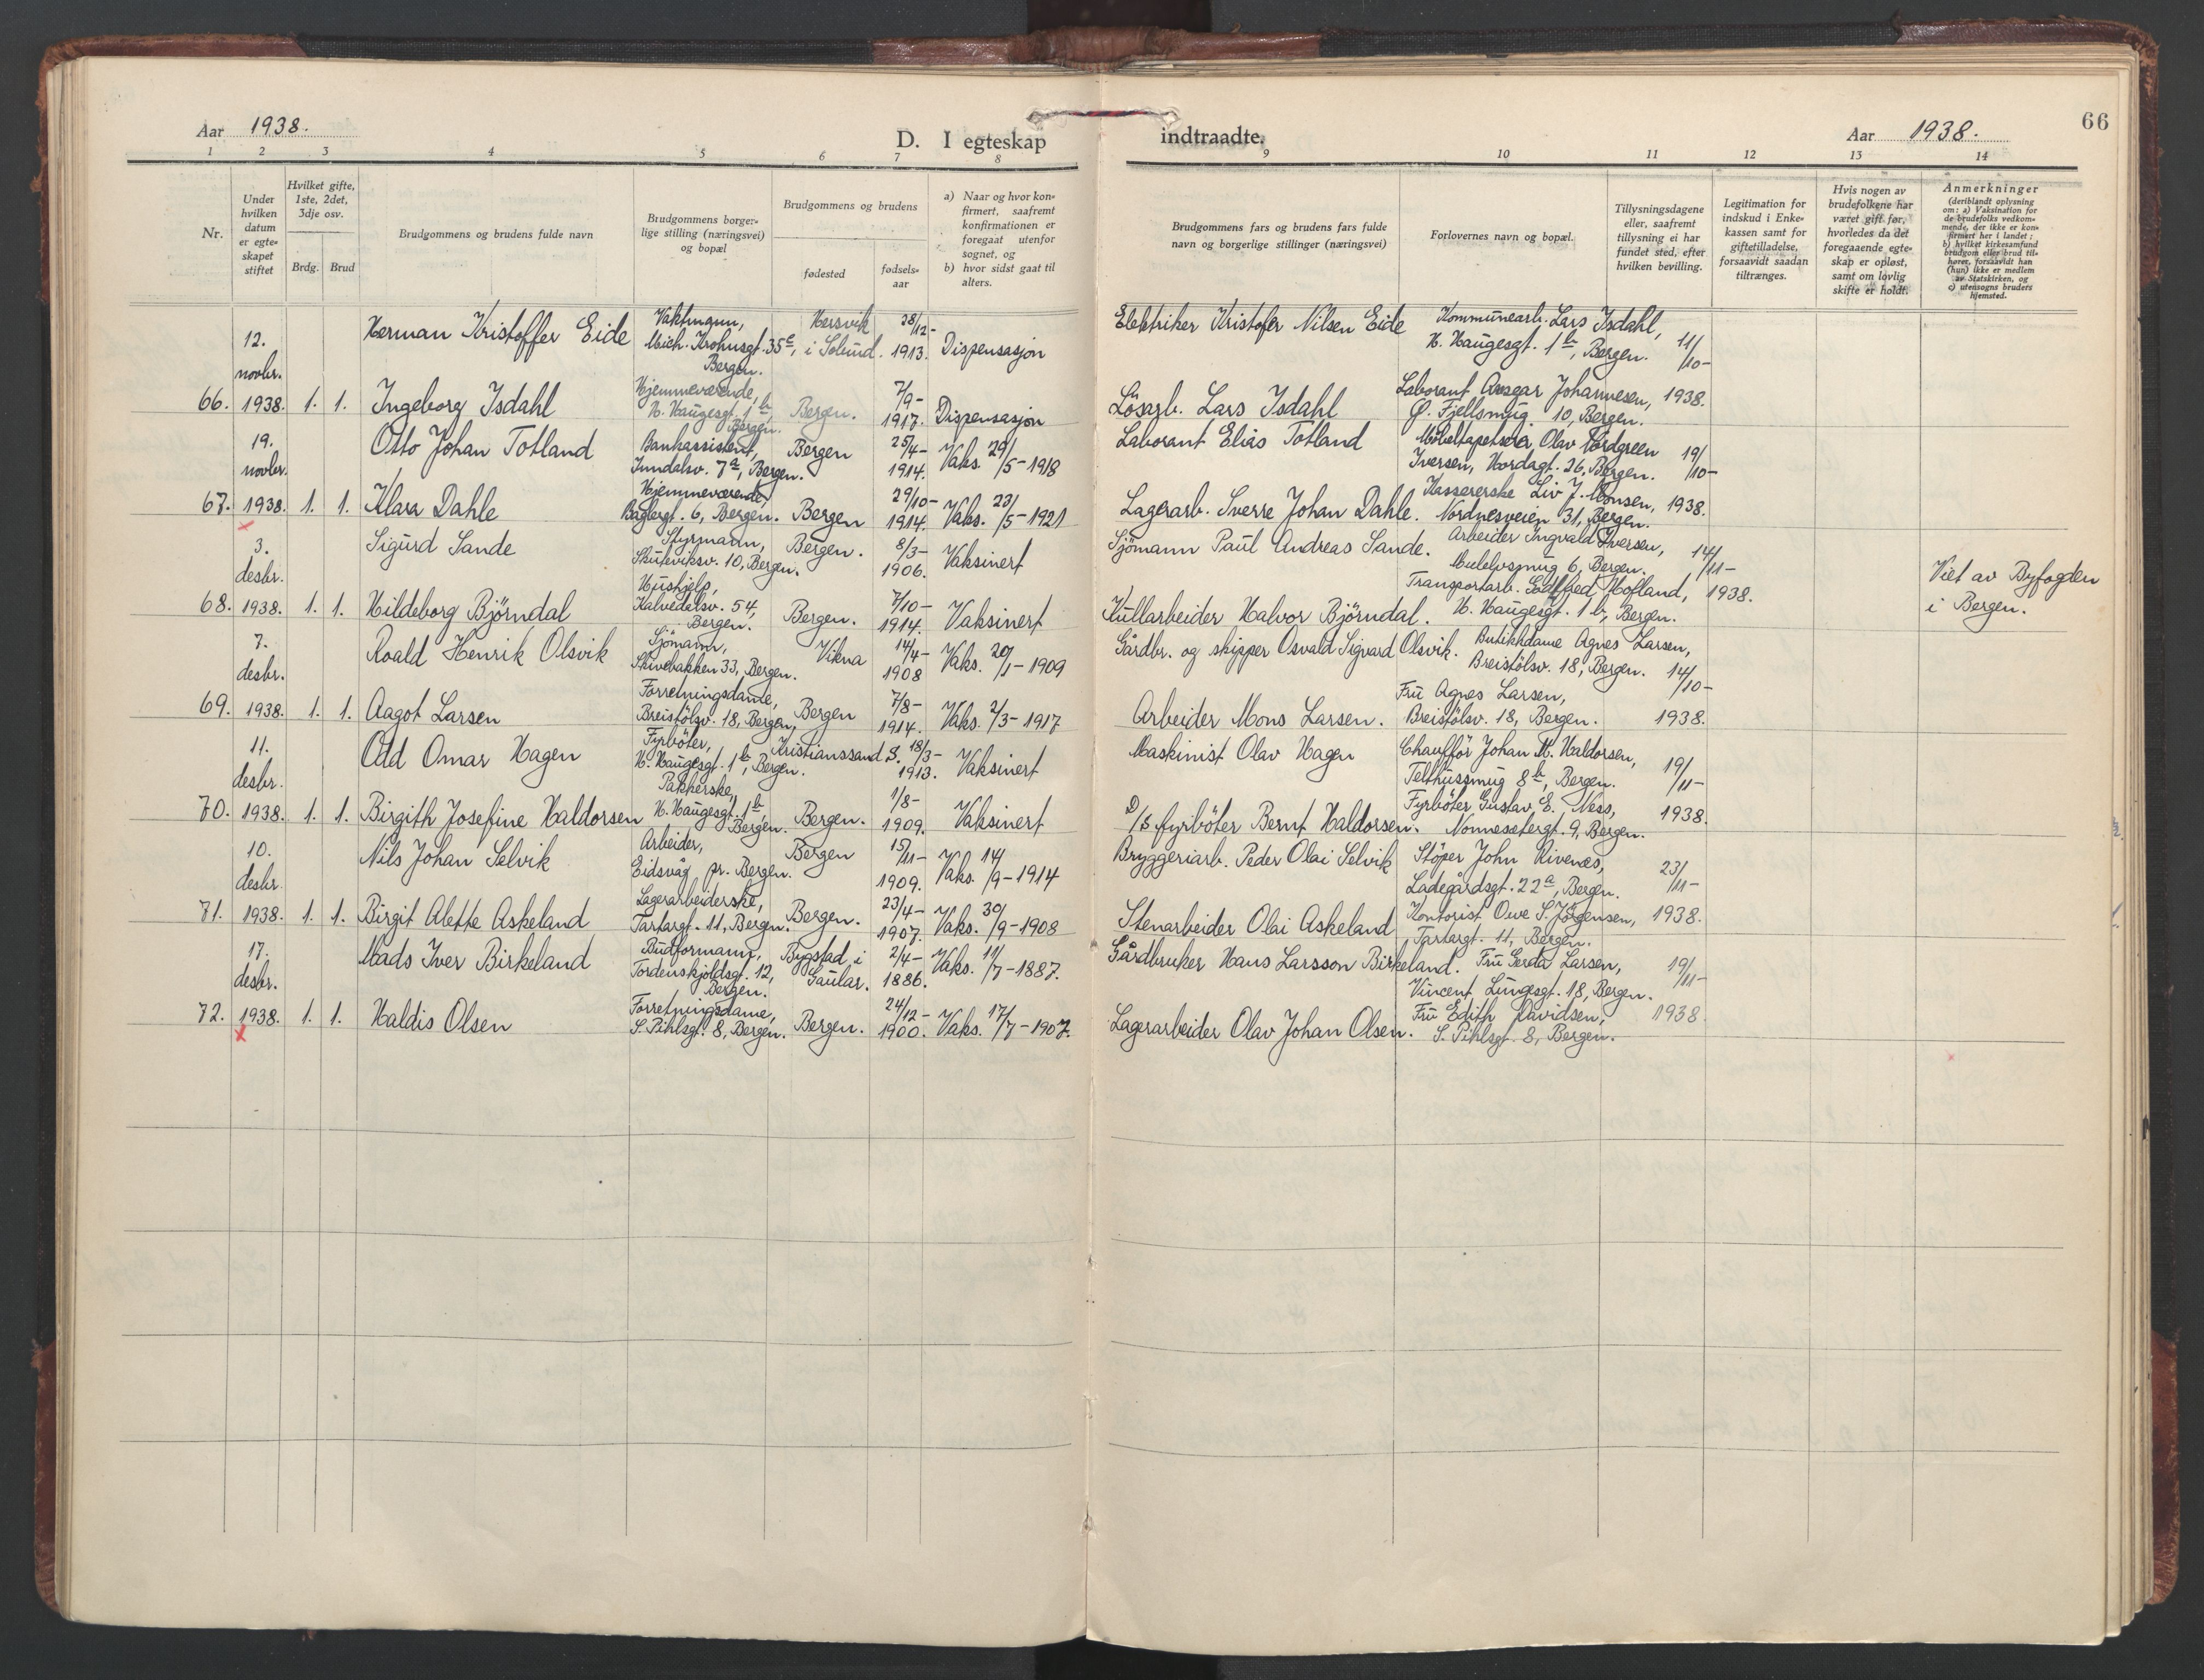 Aar 1938.
D. I egteskap
1 2 3 4 5 6 7 8
Nr.
Under hvilken datum er egteskapet stiftet
Hvilket gifte, 1ste, 2det, 3dje osv.
Brdg. Brud
Brudgommens og brudens fulde navn
Brudgommens borgerlige stilling (næringsvei) og bopæl
Brudgommens og brudens
fødested
fødselsaar
a) Naar og hvor konfirmert, saafremt konfirmationen er foregaat utenfor sognet, og
b) hvor sidst gaat til alters.
12. novbr.
Herman Kristoffer Eide
Vaktmann,
Mich. Krohnsgt. 35
Bergen.
Hersvik
i Solund.
28/12-
1913.
Dispensasjon
66. 1938. 1. 1.
Ingeborg Isdahl
Hjemmeværende,
H. Haugesgt. 1 b,
Bergen.
Bergen.
7/9-
1917.
Dispensasjon
19. novbr.
Otto Johan Totland
Bankassistent,
7 a, Bergen.
Bergen
25/4-
1914.
Vaks. 29/5-1918
67. 1938. 1. 1.
Klara Dahle
Hjemmeværende,
Baglergt. 6, Bergen.
Bergen
29/10-
1914.
Vaks. 23/5-1921
3. desbr.
Sigurd Sande
Styrmann,
Skuteviksv. 10, Bergen.
Bergen.
8/3-
1906.
Vaksinert
68. 1938. 1. 1.
Hildeborg Björndal
Hushjelp,
Kalvedalsv. 54,
Bergen.
Bergen.
7/10-
1914.
Vaksinert
7. desbr.
Roald Henrik Olsvik
Sjömann,
Skivebakken 33, Bergen.
Vikna
14/4-
1908
Vaks. 20/1-1909
69. 1938. 1. 1.
Aagot Larsen
Forretningsdame,
Breistölsv. 18, Bergen,
Bergen
7/8-
1914.
Vaks. 2/3-1917
11. desbr.
Odd Omar Hagen
Fyrböter,
H. Haugesgt. 1 b, Bergen.
Kristianssand S.
18/3-
1913.
Vaksinert
70. 1938. 1. 1.
Birgith Josefine Haldorsen
Pakkerske,
H. Haugesgt. 1 b,
Bergen.
Bergen.
1/8-
1909.
Vaksinert
10. desbr.
Nils Johan Selvik
Arbeider,
Eidsvåg pr. Bergen.
Bergen
15/11-
1909.
Vaks. 14/9-1914
71. 1938. 1. 1.
Birgit Alette Askeland
Lagerarbeiderske,
Tartargt. 11, Bergen.
Bergen.
23/4-
1907.
Vaks. 30/9-1908
17. desbr.
Mads Iver Birkeland
Budformann,
Tordenskjoldsgt. 12,
Bergen.
Bygstad i
Gaular.
2/4-
1886.
Vaks. 11/7-1887.
72. 1938. 1. 1.
Haldis Olsen
Forretningsdame,
S. Pihlsgt. 8, Bergen.
Bergen.
24/12-
1900.
Vaks. 17/7-1907.
indtraadte.
Aar 1938.
66
9 10 11 12 13 14
Brudgommens fars og brudens fars fulde navn og borgerlige stillinger (næringsvei)
Forlovernes navn og bopæl.
Tillysningsdagene eller, saafremt tillysning ei har fundet sted, efter hvilken bevilling.
Legitimation for indskud i Enkekassen samt for giftetilladelse, forsaavidt saadan tiltrænges.
Hvis nogen av brudefolkene har været gift før, hvorledes da det foregaaende egteskap er opløst, samt om lovlig skifte er holdt.
Anmerkninger
(deriblandt oplysning om: a) Vaksination for de brudefolks vedkommende, der ikke er konfirmert her i landet; b) hvilket kirkesamfund brudgom eller brud tilhører, forsaavidt han (hun) ikke er medlem av Statskirken, og c) utensogns bruders hjemsted.
Elektriker Kristofer Nilsen Eide
Kommunearb. Lars Isdahl,
H. Haugesgt. 1 b, Bergen.
11/10-
Lösarb. Lars Isdahl
Laborant Ansgar Johannesen,
Ø. Fjellsmug. 10, Bergen.
1938.
Laborant Elias Totland
Möbeltapetserer Olav Nordgreen
Iversen, Hordagt. 26, Bergen.
19/10-
Lagerarb. Sverre Johan Dahle.
Kassererske Liv J. Monsen,
Nordnesveien 31, Bergen.
1938.
Sjömann Paul Andreas Sande.
Arbeider Ingvald Iversen,
Mulelvsmug 6, Bergen.
14/11-
Kullarbeider Halvor Björndal.
Transportarb. Gotfred Hofland,
H. Haugesgt. 1 b, Bergen.
1938.
Viet av Byfogden
i Bergen.
Gårdbr. og skipper Osvald Sigvard Olsvik.
Butikkdame Agnes Larsen,
Breistölsv. 18, Bergen.
14/10-
Arbeider Mons Larsen.
Fru Agnes Larsen,
Breistölsv. 18, Bergen.
1938.
Maskinist Olav Hagen
Chaufför Johan M. Haldorsen,
Telthussmug 8 b, Bergen.
19/11-
D/S fyrböter Bernt Haldorsen.
Fyrböter Gustav E. Ness,
Nonnesetergt. 9, Bergen.
1938.
Bryggeriarb. Peder Olai Selvik
Stöper John Rivenes,
Ladegårdsgt. 22 a, Bergen.
23/11-
Stenarbeider Olai Askeland
Kontorist Owe S. Jörgensen,
Tartargt. 11, Bergen.
1938.
Gårdbruker Hans Larsson Birkeland.
Fru Gerda Larsen,
Vincent Lungesgt. 18, Bergen.
19/11-
Lagerarbeider Olav Johan Olsen.
Fru Edith Davidsen,
S. Pihlsgt. 8, Bergen.
1938.